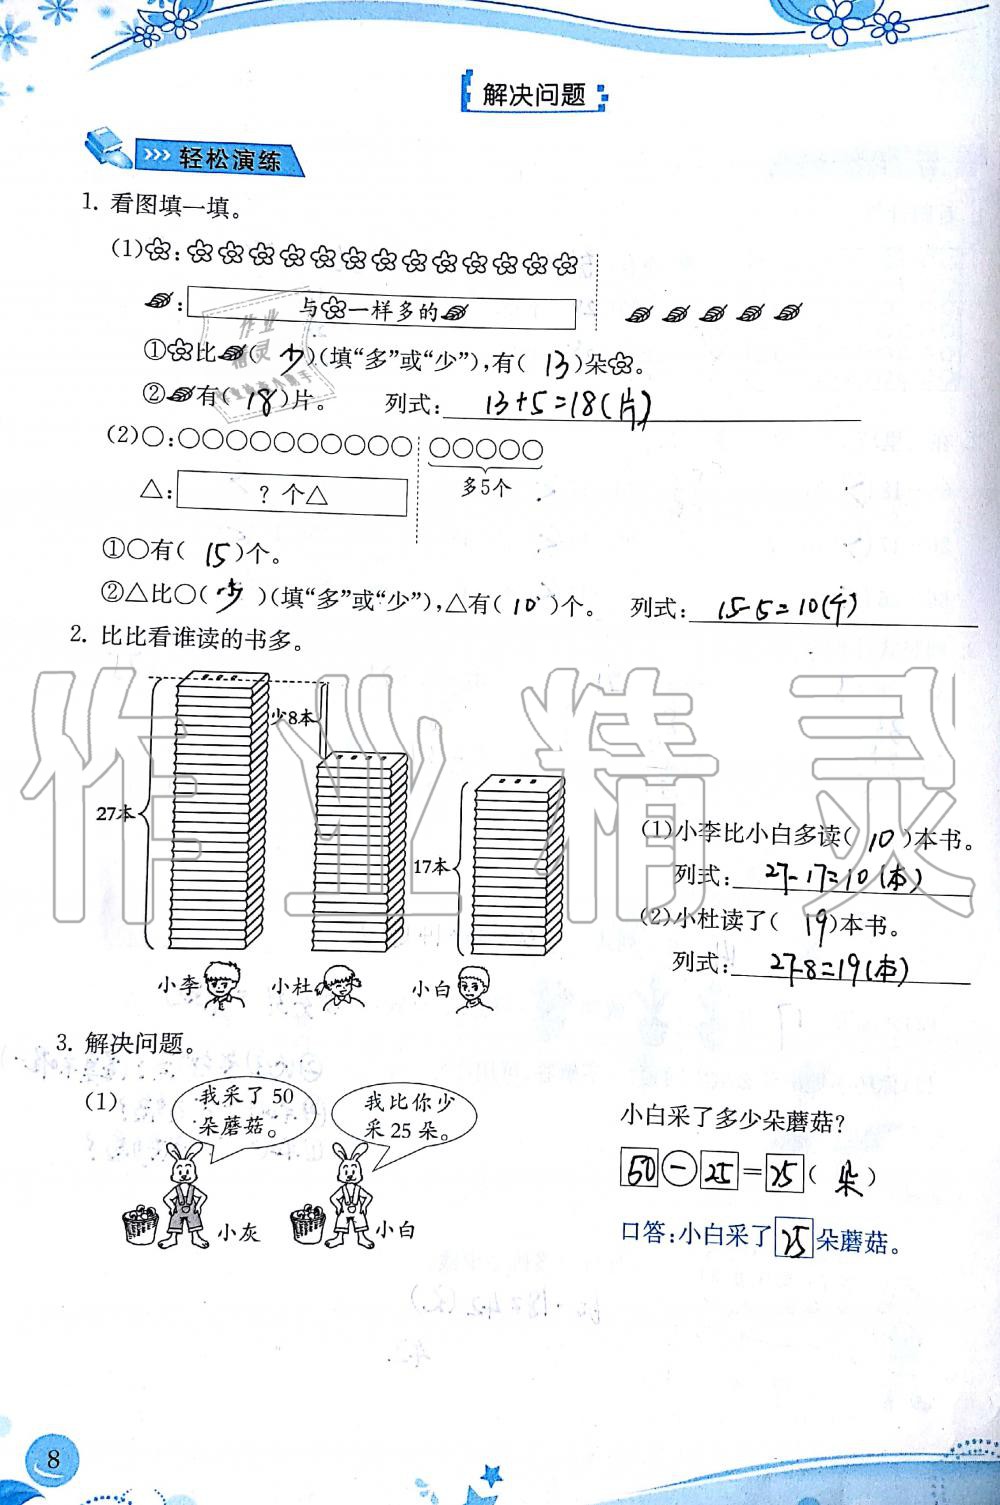 解决问题
轻松演练
1. 看图填一填。
(1) :
: 与 一样多的
① 比 ( 少 )(填“多”或“少”),有( 13 )朵 。
② 有( 18 )片。 列式: 13+5=18(片)
(2)○:○○○○○○○○○○ ○○○○○
多5个
△: ? 个△
①○有( 15 )个。
②△比○( 少 )(填“多”或“少”),△有( 10 )个。 列式: 15-5=10(个)
2. 比比看谁读的书多。
少8本
27本
17本
小李 小杜 小白
(1)小李比小白多读( 10 )本书。
列式: 27-17=10(本)
(2)小杜读了( 19 )本书。
列式: 27-8=19(本)
3. 解决问题。
(1)
我采了 50
朵蘑菇。
我比你少
采 25 朵。
小灰 小白
小白采了多少朵蘑菇?
50 - 25 = 25 ( 朵 )
口答:小白采了 25 朵蘑菇。
8
作业精灵
作业
精灵